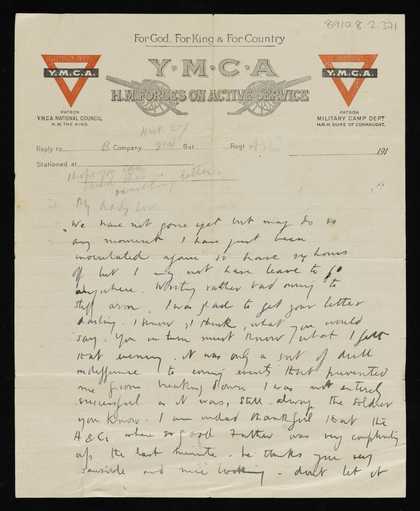 8910.8.2.321
For God, For King & For Country
Y·M·C·A
H.M. FORCES ON ACTIVE SERVICE
Y.M.C.A.
Y.M.C.A.
PATRON
Y.M.C.A. NATIONAL COUNCIL
H.M. THE KING.
PATRON
MILITARY CAMP DEPT
H.R.H. DUKE OF CONNAUGHT.
Reply to B Company Bat Regt 191
Stationed at
letters
My Lady Love
We have not gone yet but may do so
any moment I have just been
inoculated again so have 24 hours
off but I may not have leave to go
anywhere. Writing rather bad owing to
stiff arm. I was glad to get your letter
darling. I know, I think, what you would
say. You in turn must know what I felt
that evening. It was only a sort of dull
indifference to coming events that prevented
me from breaking down. I was not entirely
successful as it was, still always the soldier
you know. I am indeed thankful that the
A & Cs were so good Father was very
up the last minute. He thinks you very
sensible and nice looking - don't let it